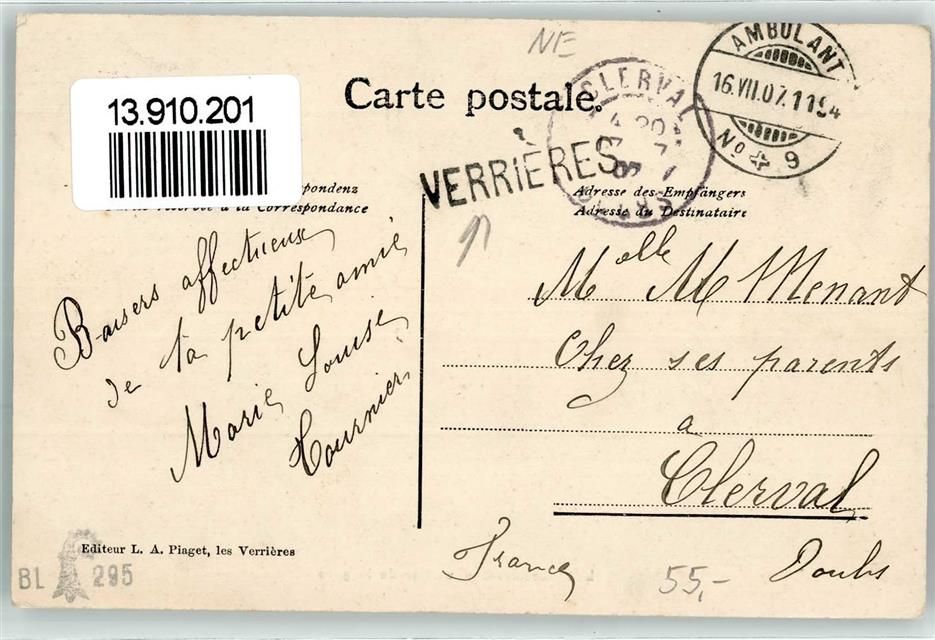 NE
13.910.201
Carte postale.
CLERVAL
AMBULANT
16.VII.07.11
No 9
VERRIÈRES
pondenz
réservé à la Correspondance
Adresse des Empfängers
Adresse du Destinataire
Baisers affectueux
de ta petite amie
Marie Louise
Tournier
Melle M Menant
Chez ses parents
a
Clerval
France
Doubs
Editeur L. A. Piaget, les Verrières
BL 295
55,-